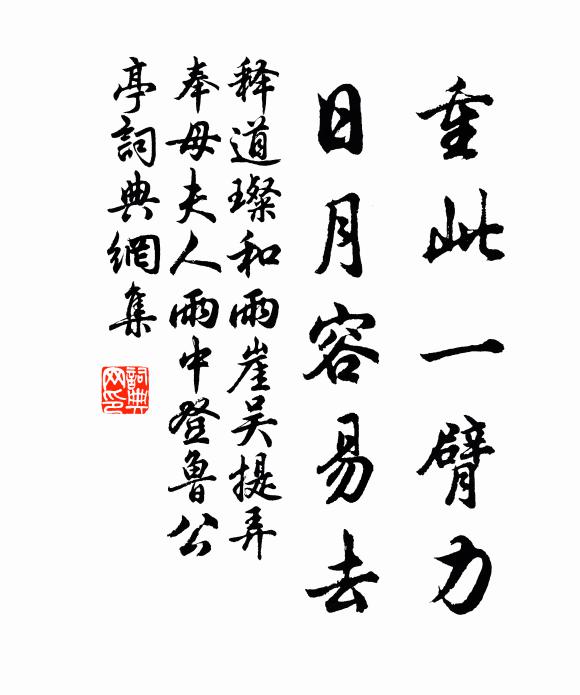 重此一臂力
日月容易去
释道璨和雨崖吴提弄
奉母夫人雨中登鲁公
亭詞典網集
詞典网印